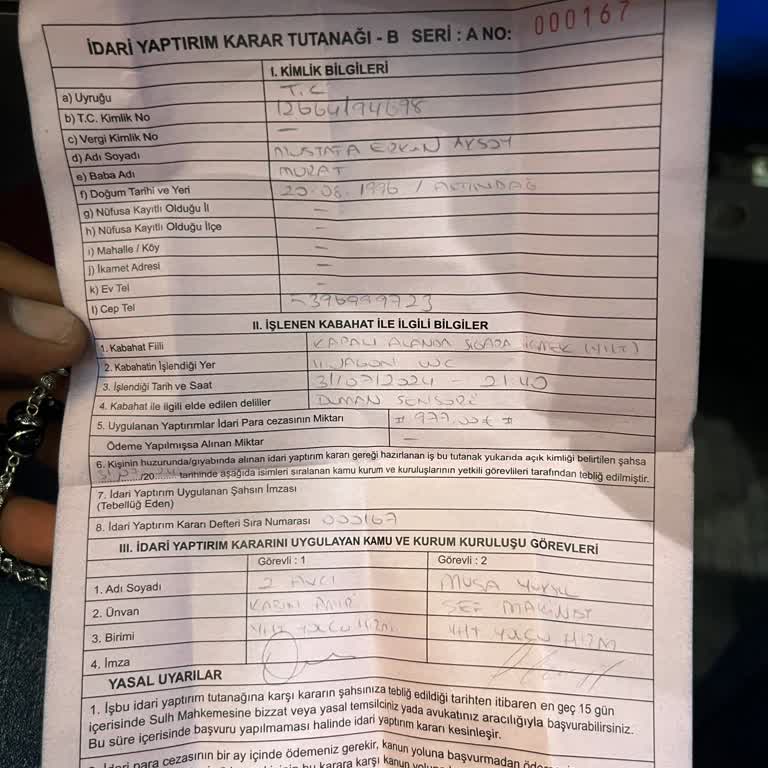 İDARİ YAPTIRIM KARAR TUTANAĞI - B SERİ : A NO: 000167
I. KİMLİK BİLGİLERİ
a) Uyruğu T.C
b) T.C. Kimlik No
c) Vergi Kimlik No —
d) Adı Soyadı MUSTAFA
e) Baba Adı MURAT
f) Doğum Tarihi ve Yeri 20.06.1996 / ALTINDAĞ
g) Nüfusa Kayıtlı Olduğu İl —
h) Nüfusa Kayıtlı Olduğu İlçe —
ı) Mahalle / Köy —
j) İkamet Adresi —
k) Ev Tel —
l) Cep Tel
II. İŞLENEN KABAHAT İLE İLGİLİ BİLGİLER
1. Kabahat Fiili KAPALI ALANDA SİGARA İÇMEK (YHT)
2. Kabahatin İşlendiği Yer VAGON WC
3. İşlendiği Tarih ve Saat 31/07/2024 - 21:40
4. Kabahat ile ilgili elde edilen deliller DUMAN SENSÖRÜ
5. Uygulanan Yaptırımlar İdari Para cezasının Miktarı # 977.00₺ #
Ödeme Yapılmışsa Alınan Miktar —
6. Kişinin huzurunda/gıyabında alınan idari yaptırım kararı gereği hazırlanan iş bu tutanak yukarıda açık kimliği belirtilen şahsa
/20 tarihinde aşağıda isimleri sıralanan kamu kurum ve kuruluşlarının yetkili görevlileri tarafından tebliğ edilmiştir.
7. İdari Yaptırım Uygulanan Şahsın İmzası
(Tebellüğ Eden)
8. İdari Yaptırım Kararı Defteri Sıra Numarası 000167
III. İDARİ YAPTIRIM KARARINI UYGULAYAN KAMU VE KURUM KURULUŞU GÖREVLERİ
Görevli : 1 Görevli : 2
1. Adı Soyadı AVCI MUSA
2. Ünvan ŞEF MAKİNİST
3. Birimi YHT YOLCU HİZM YHT YOLCU HİZM
4. İmza
YASAL UYARILAR
1. İşbu idari yaptırım tutanağına karşı kararın şahsınıza tebliğ edildiği tarihten itibaren en geç 15 gün
içerisinde Sulh Mahkemesine bizzat veya yasal temsilciniz yada avukatınız aracılığıyla başvurabilirsiniz.
Bu süre içerisinde başvuru yapılmaması halinde idari yaptırım kararı kesinleşir.
para cezasının bir ay içinde ödemeniz gerekir, kanun yoluna başvurmadan
bu karara karşı kanun